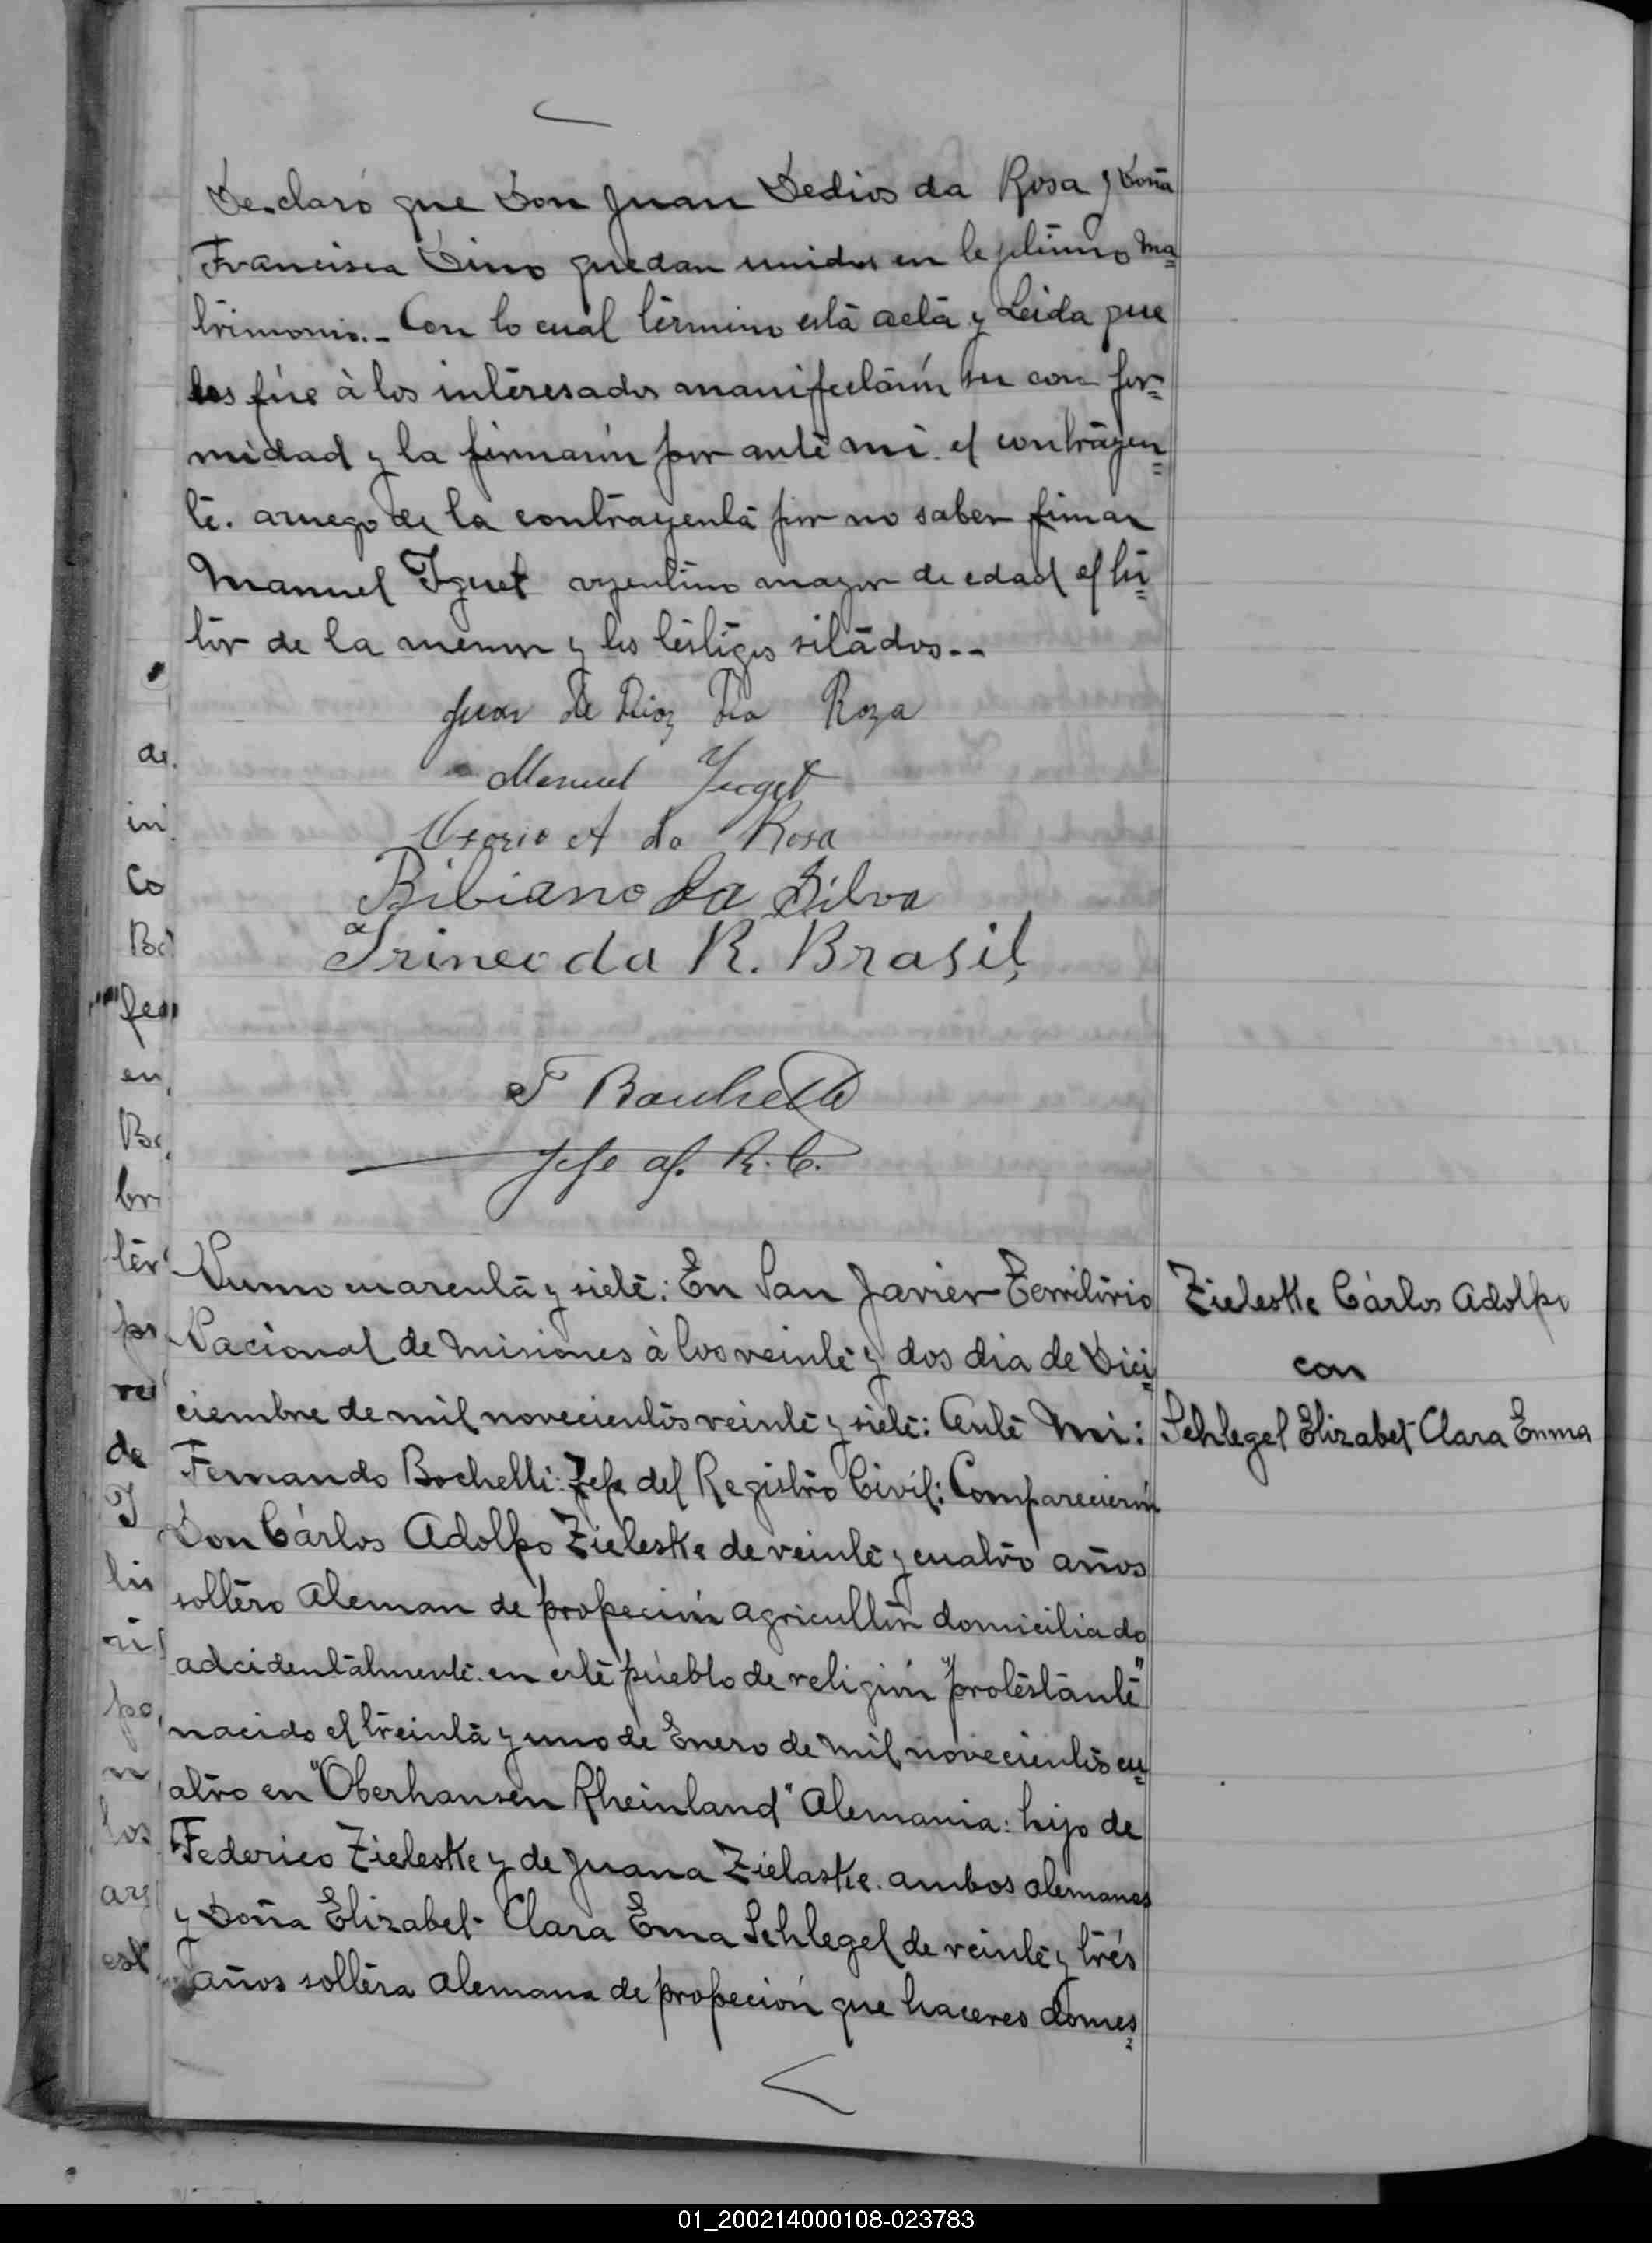 Declaró que Don Juan Dedios da Rosa y Doña
Francisca Dino quedan unidos en lejitimo ma=
trimonio.- Con lo cual termino esta acta y Leida que
les fúe à los interesados manifestarón su con for=
midad y la firmarón por ante mi. el contrayen=
te. aruego de la contrayenta por no saber fimar
Manuel Yguet arjentino mayor de edad el tu=
tor de la menor y los testigos sitados--
Juan De Dioz Da Roza
Manuel
A da Rosa
Bibiano da Silva
Irineo da R. Brasil
F Bochelli
Jefe of. R. C.
Numo cuarenta y siete: En San Javier Territorio
Nacional de Misiones à los veinte y dos dia de Dici=
ciembre de mil novecientos veinte y siete: Ante Mi:
Fernando Bochelli: Jefe del Registro Civil: Comparecierón
Don Cárlos Adolfo Zieleske de veinte y cuatro años
soltero Aleman de profeción agricultor domiciliado
adcidentalmente. en este púeblo de religión "protestante"
nacido el treinta y uno de Enero de mil novecientos cu=
atro en "Oberhansen Rheinland" Alemania: hijo de
Federico Zieleske y de Juana Zielaske. ambos alemanes
y Doña Elizabet Clara Ema Schlegel de veinte y trés
años soltera Alemana de profeción que haceres domes=
Zieleske Cárlos Adolfo
con
Schlegel Elizabet Clara Emma
de
in
Co
Bo
fea
en
Bo
br
ter
po
de
lis
po
los
arg
est
01_200214000108-023783